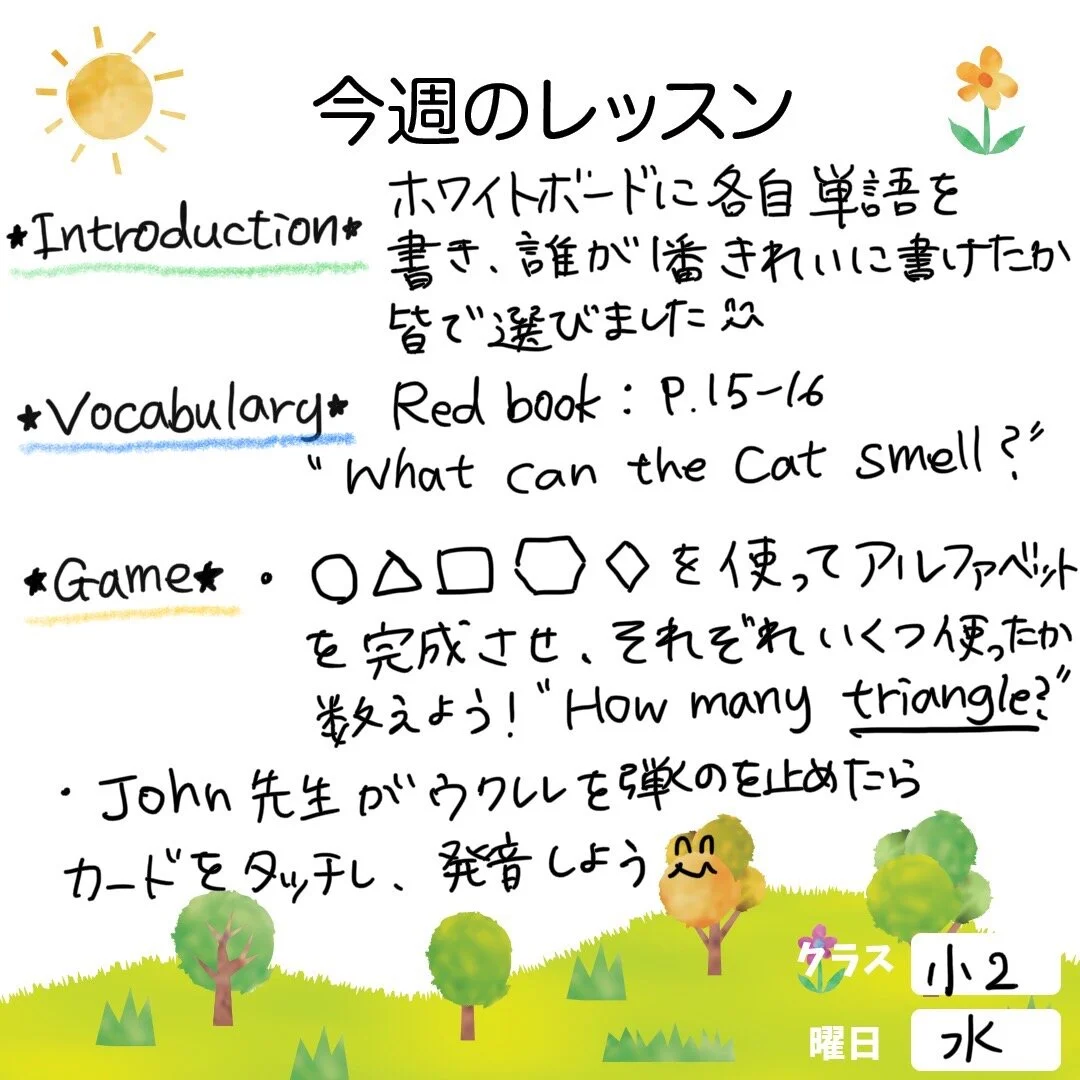 今週のレッスン
*Introduction* ホワイトボードに各自単語を
書き、誰が1番きれいに書けたか
皆で選びました
*Vocabulary* Red book : P.15-16
"What can the Cat smell?"
*Game* ・○△□⬡◇を使ってアルファベット
を完成させ、それぞれいくつ使ったか
数えよう!"How many triangle?"
・John先生がウクレレを弾くのを止めたら
カードをタッチし、発音しよう
クラス 小2
曜日 水